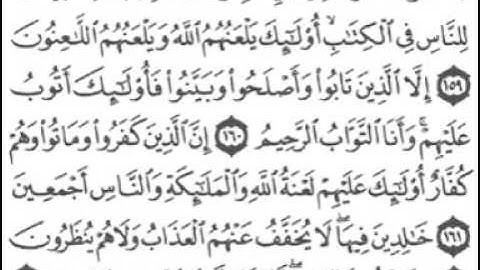 لِلنَّاسِ فِي ٱلْكِتَٰبِ أُوْلَٰٓئِكَ يَلْعَنُهُمُ ٱللَّهُ وَيَلْعَنُهُمُ ٱللَّٰعِنُونَ
١٥٩ إِلَّا ٱلَّذِينَ تَابُواْ وَأَصْلَحُواْ وَبَيَّنُواْ فَأُوْلَٰٓئِكَ أَتُوبُ
عَلَيْهِمْ وَأَنَا ٱلتَّوَّابُ ٱلرَّحِيمُ ١٦٠ إِنَّ ٱلَّذِينَ كَفَرُواْ وَمَاتُواْ وَهُمْ
كُفَّارٌ أُوْلَٰٓئِكَ عَلَيْهِمْ لَعْنَةُ ٱللَّهِ وَٱلْمَلَٰٓئِكَةِ وَٱلنَّاسِ أَجْمَعِينَ
١٦١ خَٰلِدِينَ فِيهَا لَا يُخَفَّفُ عَنْهُمُ ٱلْعَذَابُ وَلَا هُمْ يُنظَرُونَ